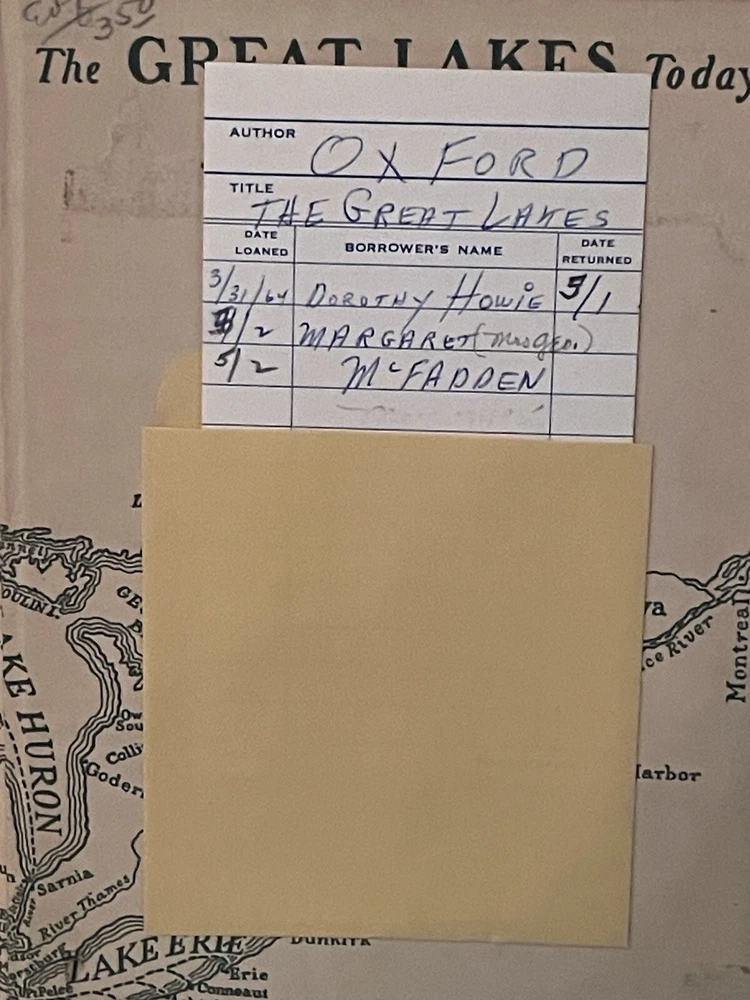 350
The GREAT LAKES Today
AUTHOR OXFORD
TITLE THE GREAT LAKES
DATE LOANED BORROWER'S NAME DATE RETURNED
3/31/64 DOROTHY HOWIE 5/1
/2 MARGARET (Mrs Geo.)
5/2 McFADDEN
LAKE HURON
Sarnia
River Thames
LAKE ERIE
Erie
Conneaut
Pelee
ce River
Montreal
arbor